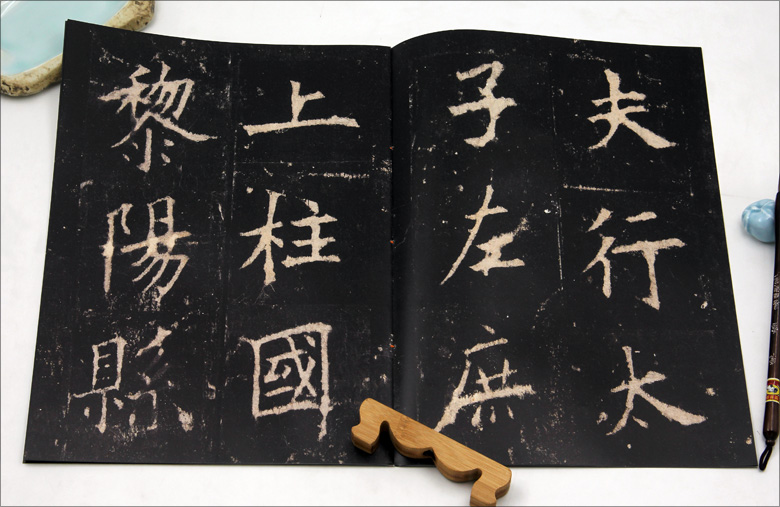 夫行太
子左庶
上柱國
黎陽縣